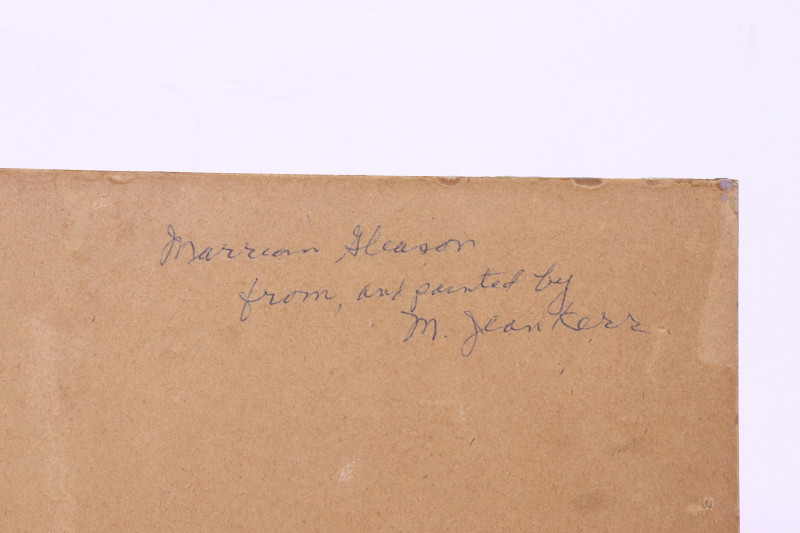 Marrian Gleason
from, and painted by
M. Jean Kerr